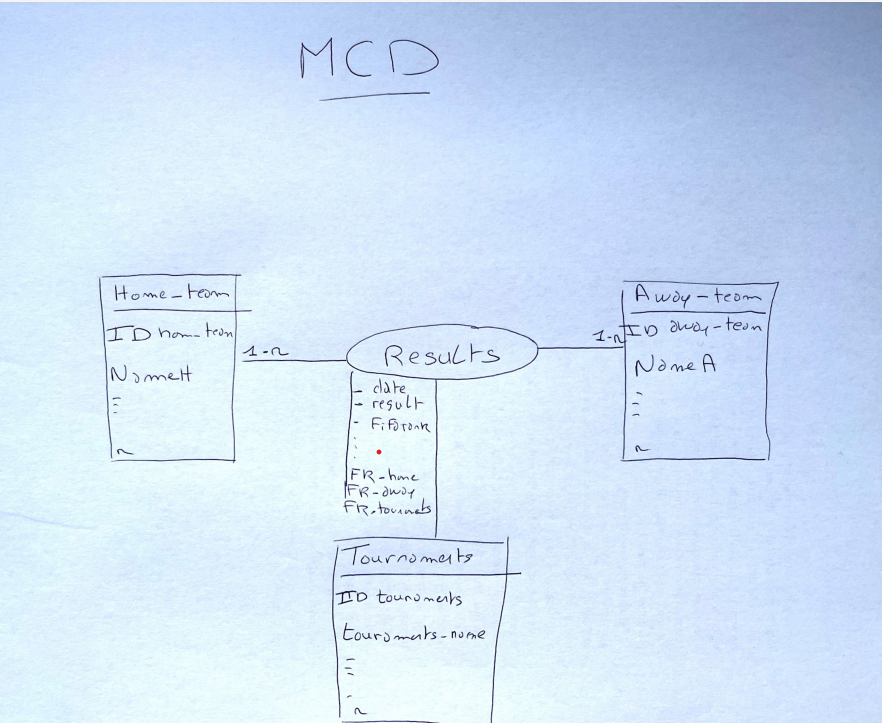 MCD
Home-team
ID home-team
NameH
n
1-n
Results
- date
- result
- Fifarank
FR-home
FR-away
FR-tournets
1-n
Away-team
ID away-team
NameA
n
Tournaments
ID touroments
touroments-name
n